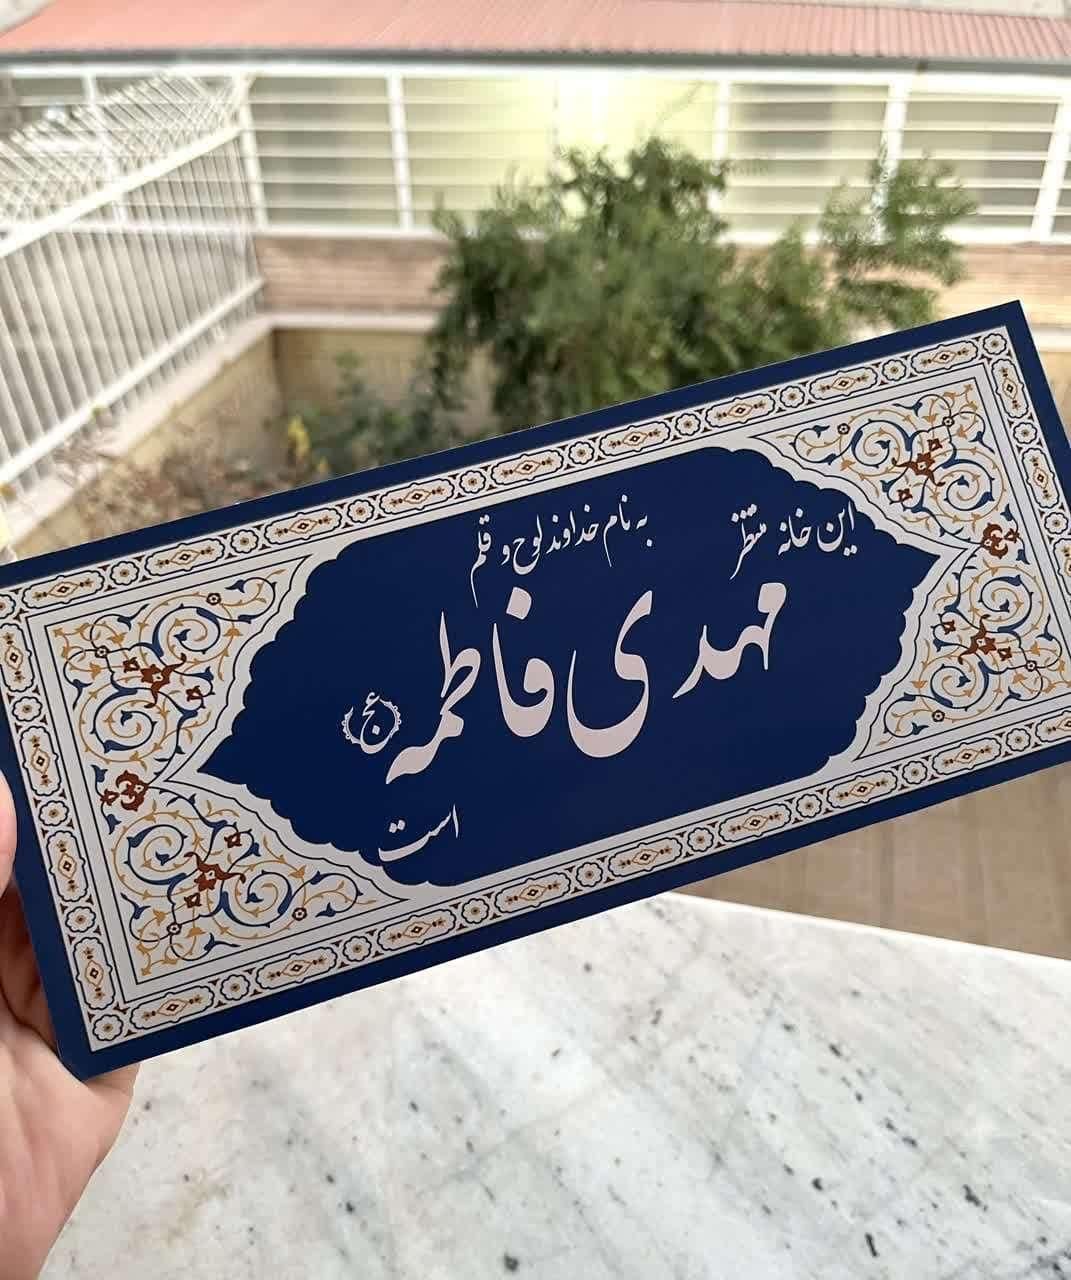 به نام خداوند لوح و قلم
این خانه منتظر
مهدی فاطمه (عج)
است